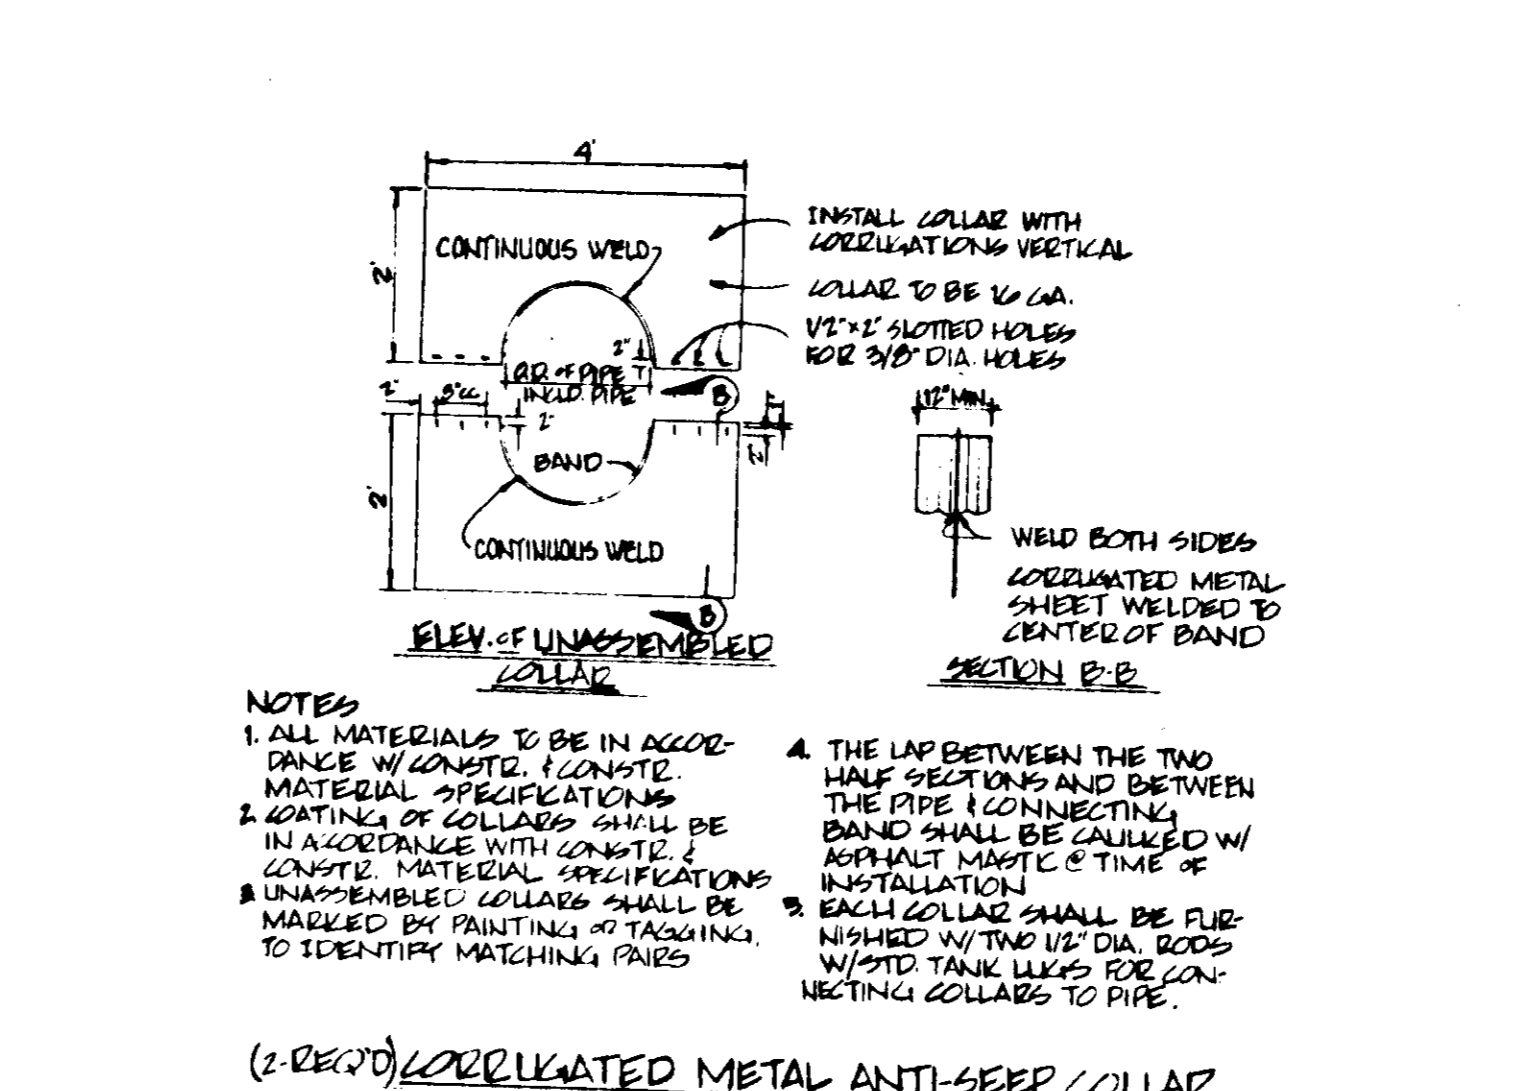 4'
INSTALL COLLAR WITH
CORRUGATIONS VERTICAL
CONTINUOUS WELD
2'
COLLAR TO BE 16 GA.
1/2"x2" SLOTTED HOLES
FOR 3/8" DIA. HOLES
2"
O.D. OF PIPE
INCLD. PIPE
B
2"
8"CC
2"
12" MIN.
BAND
2"
2'
CONTINUOUS WELD
WELD BOTH SIDES
CORRUGATED METAL
SHEET WELDED TO
CENTER OF BAND
B
ELEV. OF UNASSEMBLED
COLLAR
SECTION B-B
NOTES
1. ALL MATERIALS TO BE IN ACCOR-
DANCE W/ CONSTR. & CONSTR.
MATERIAL SPECIFICATIONS
2. COATING OF COLLARS SHALL BE
IN ACCORDANCE WITH CONSTR. &
CONSTR. MATERIAL SPECIFICATIONS
3. UNASSEMBLED COLLARS SHALL BE
MARKED BY PAINTING OR TAGGING,
TO IDENTIFY MATCHING PAIRS
4. THE LAP BETWEEN THE TWO
HALF SECTIONS AND BETWEEN
THE PIPE & CONNECTING
BAND SHALL BE CAULKED W/
ASPHALT MASTIC @ TIME OF
INSTALLATION
5. EACH COLLAR SHALL BE FUR-
NISHED W/ TWO 1/2" DIA. RODS
W/STD. TANK LUGS FOR CON-
NECTING COLLARS TO PIPE.
(2-REQ'D) CORRUGATED METAL ANTI-SEEP COLLAR